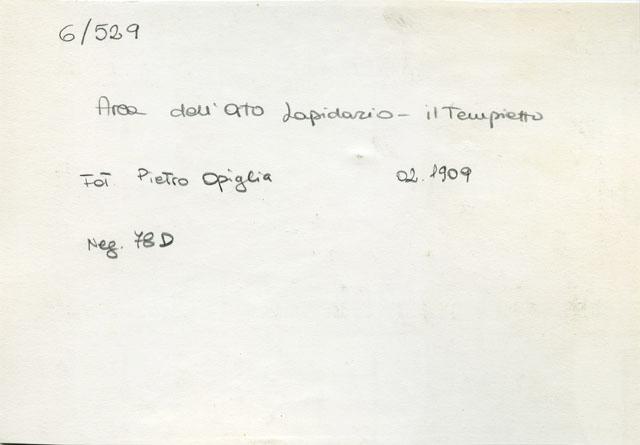 6/529
Area dell'Orto Lapidario - il Tempietto
Fot Pietro Opiglia 02.1909
Neg. 78 D